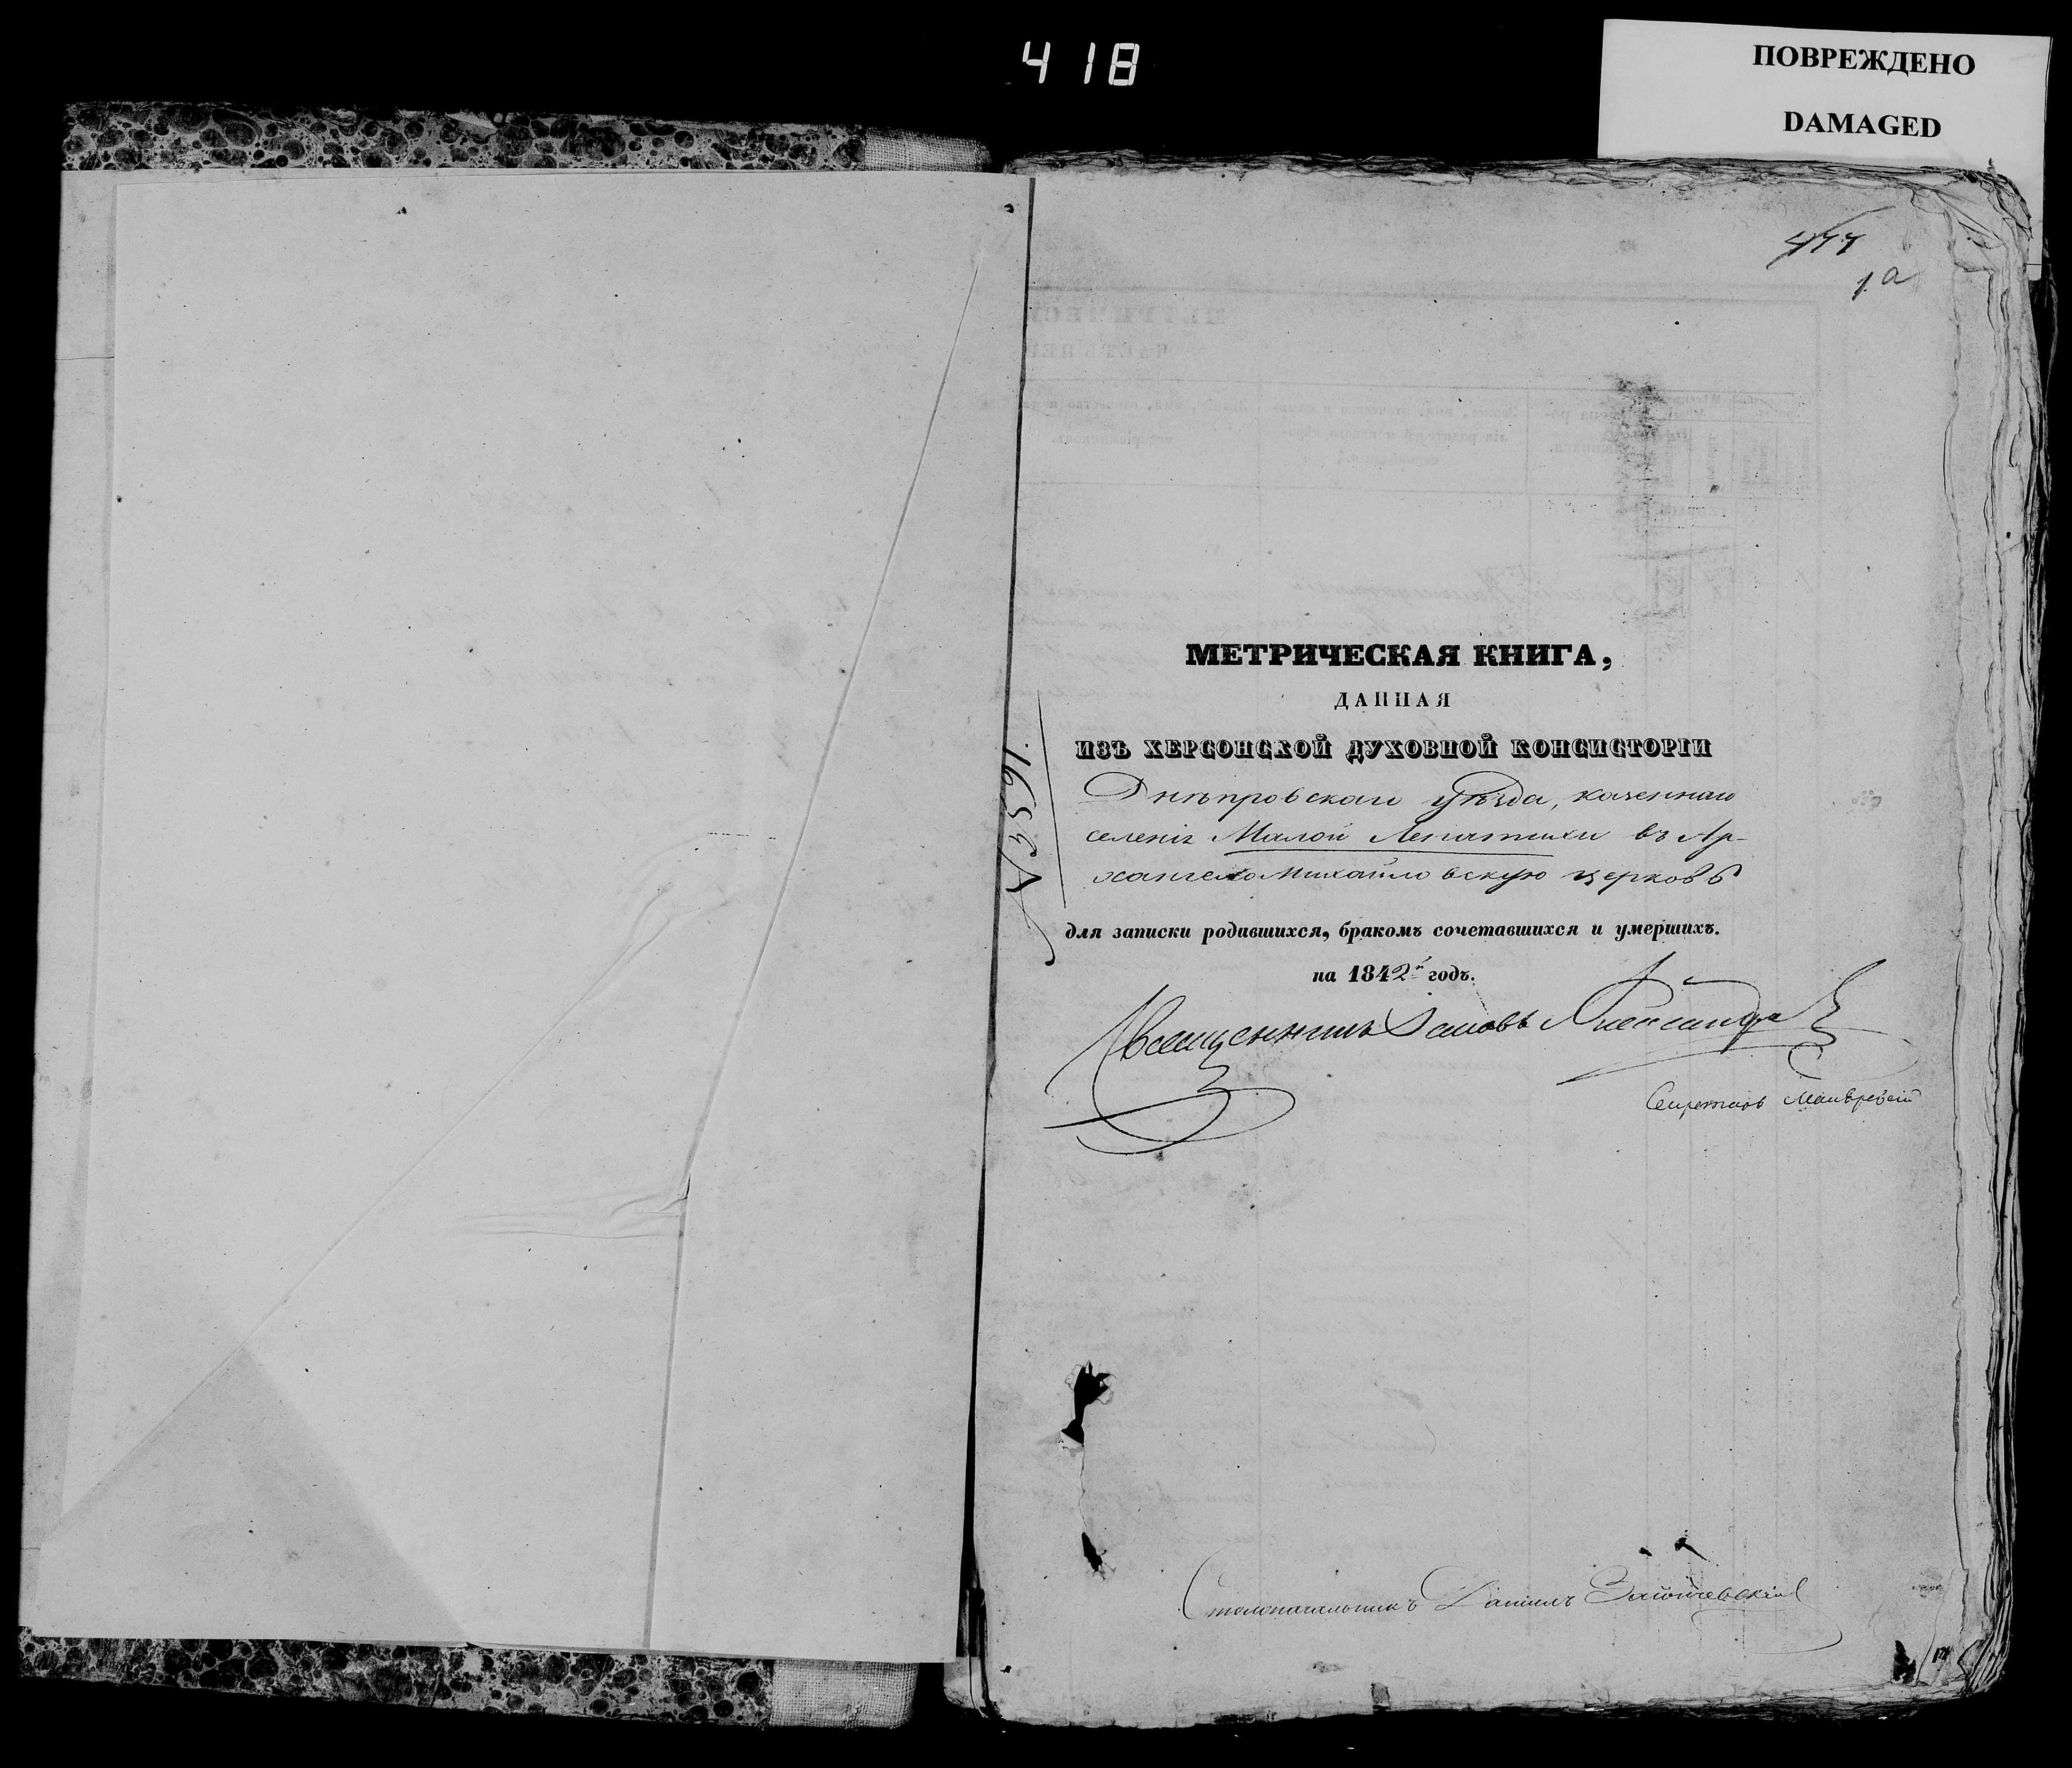 418
ПОВРЕЖДЕНО
DAMAGED
477
1а
МЕТРИЧЕСКАЯ КНИГА,
ДАННАЯ
ИЗЪ ХЕРСОНСКОЙ ДУХОВНОЙ КОНСИСТОРІИ
Днѣпровскаго уѣзда, казеннаго
селенія Малой Лепатихи въ Ар-
хангело Михайловскую церковь
для записки родившихся, бракомъ сочетавшихся и умершихъ.
на 1842й годъ.
N 3591.
Священникъ
Секретарь
Столоначальникъ Даніилъ